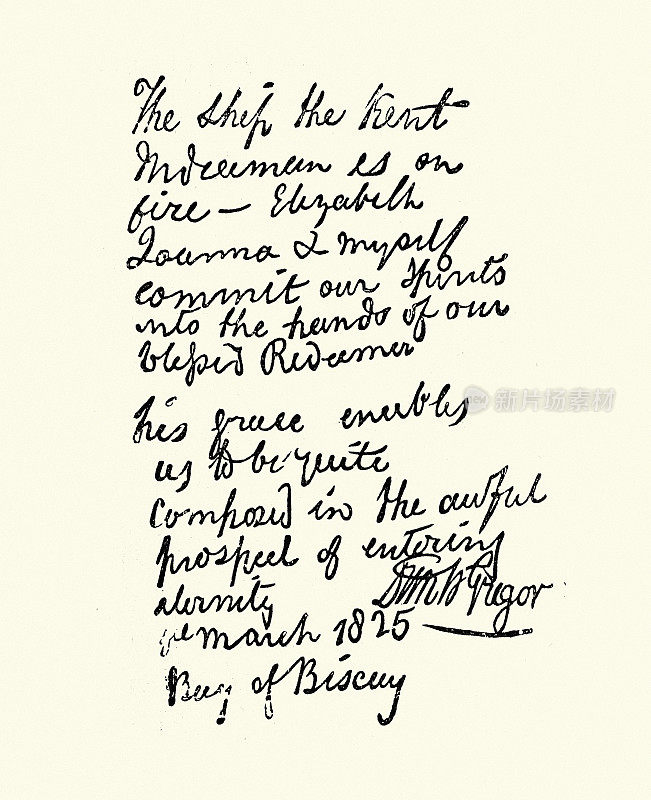 The ship the Kent
Indiaman is on
fire — Elizabeth
Joanna & myself
commit our spirits
into the hands of our
blessed Redeemer
his grace enables
us to be quite
composed in the awful
prospect of entering
eternity
Dun McGregor
March 1825
Bay of Biscay
新片场素材